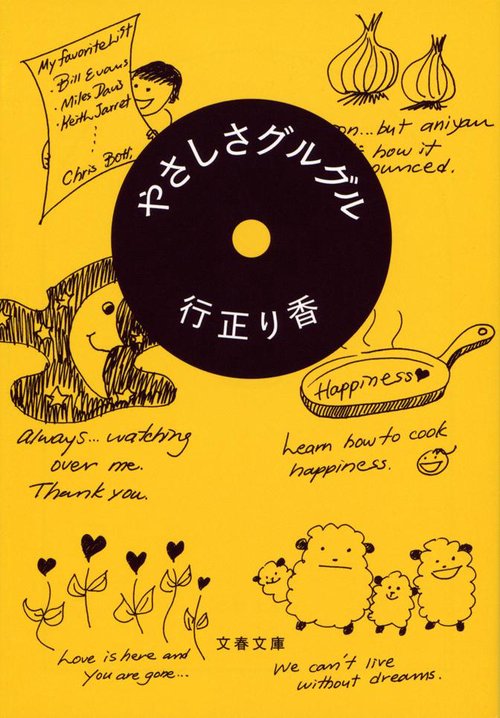 My favorite List
・Bill Evans
・Miles Davis
・Keith Jarret
Chris Botti
on...but aniyan
how it
ounced.
やさしさグルグル
行正り香
Always... watching
over me.
Thank you.
Happiness
Learn how to cook
happiness.
Love is here and
you are gone...
文春文庫
We can't live
without dreams.